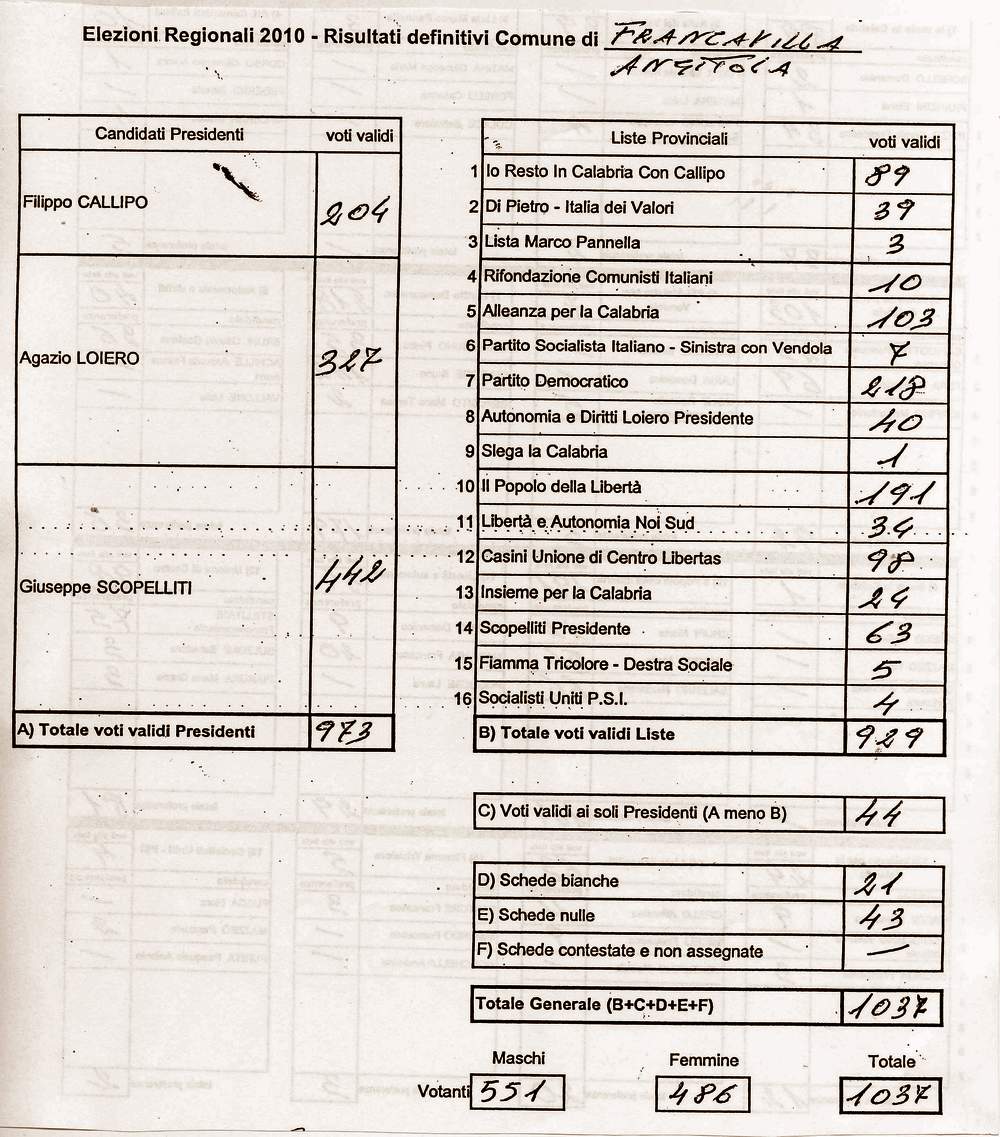 Elezioni Regionali 2010 - Risultati definitivi Comune di FRANCAVILLA
ANGITOLA
Candidati Presidenti voti validi
Filippo CALLIPO 204
Agazio LOIERO 327
Giuseppe SCOPELLITI 442
A) Totale voti validi Presidenti 973
Liste Provinciali voti validi
1 Io Resto In Calabria Con Callipo 89
2 Di Pietro - Italia dei Valori 39
3 Lista Marco Pannella 3
4 Rifondazione Comunisti Italiani 10
5 Alleanza per la Calabria 103
6 Partito Socialista Italiano - Sinistra con Vendola 7
7 Partito Democratico 218
8 Autonomia e Diritti Loiero Presidente 40
9 Slega la Calabria 1
10 Il Popolo della Libertà 191
11 Libertà e Autonomia Noi Sud 34
12 Casini Unione di Centro Libertas 98
13 Insieme per la Calabria 24
14 Scopelliti Presidente 63
15 Fiamma Tricolore - Destra Sociale 5
16 Socialisti Uniti P.S.I. 4
B) Totale voti validi Liste 929
C) Voti validi ai soli Presidenti (A meno B) 44
D) Schede bianche 21
E) Schede nulle 43
F) Schede contestate e non assegnate —
Totale Generale (B+C+D+E+F) 1037
Maschi Femmine Totale
Votanti 551 486 1037